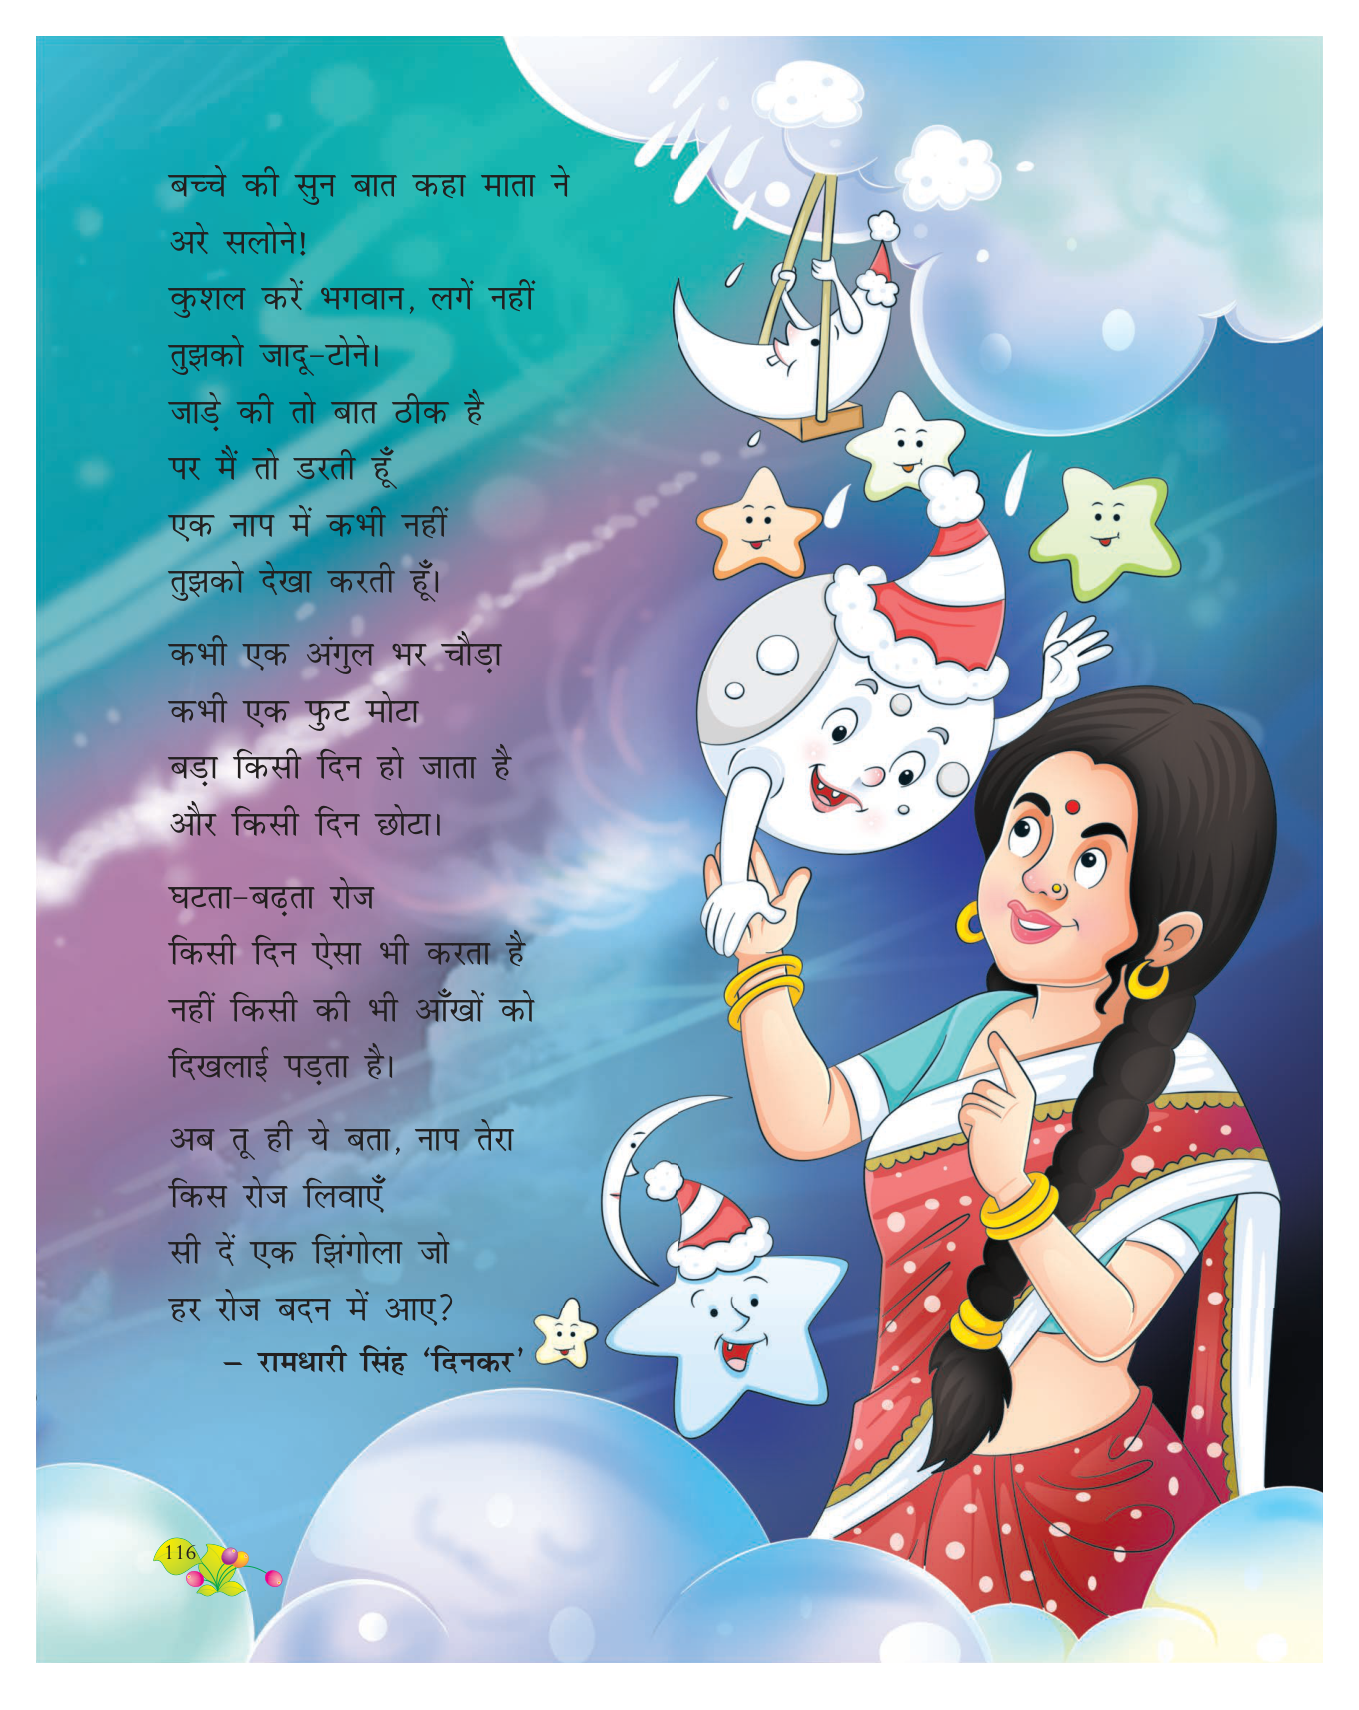 बच्चे की सुन बात कहा माता ने
अरे सलोने!
कुशल करें भगवान, लगें नहीं
तुझको जादू-टोने।
जाड़े की तो बात ठीक है
पर मैं तो डरती हूँ
एक नाप में कभी नहीं
तुझको देखा करती हूँ।
कभी एक अंगुल भर चौड़ा
कभी एक फुट मोटा
बड़ा किसी दिन हो जाता है
और किसी दिन छोटा।
घटता-बढ़ता रोज
किसी दिन ऐसा भी करता है
नहीं किसी की भी आँखों को
दिखलाई पड़ता है।
अब तू ही ये बता, नाप तेरा
किस रोज लिवाएँ
सी दें एक झिंगोला जो
हर रोज बदन में आए?
– रामधारी सिंह ‘दिनकर’
116